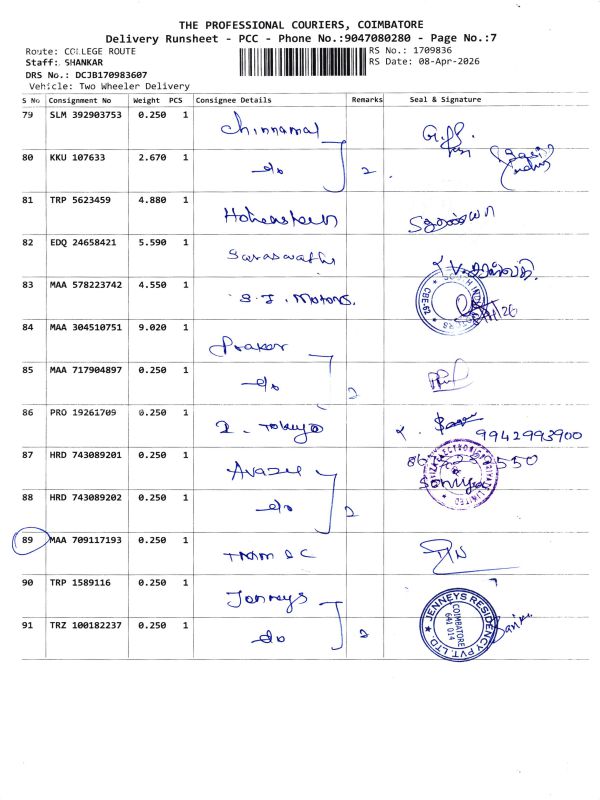 THE PROFESSIONAL COURIERS, COIMBATORE
Delivery Runsheet - PCC - Phone No.:9047080280 - Page No.:7
Route: COLLEGE ROUTE
RS No.: 1709836
Staff: SHANKAR
RS Date: 08-Apr-2026
DRS No.: DCJB170983607
Vehicle: Two Wheeler Delivery
S No Consignment No Weight PCS Consignee Details Remarks Seal & Signature
79 SLM 392903753 0.250 1 Chinnamal
80 KKU 107633 2.670 1 do 2
81 TRP 5623459 4.880 1
82 EDQ 24658421 5.590 1 Saraswathi
83 MAA 578223742 4.550 1 S.J. Motors.
84 MAA 304510751 9.020 1
85 MAA 717904897 0.250 1 do 2
86 PRO 19261709 0.250 1 2. Tokyo 9942993900
87 HRD 743089201 0.250 1
88 HRD 743089202 0.250 1 do 2
89 MAA 709117193 0.250 1
90 TRP 1589116 0.250 1 Jenneys
91 TRZ 100182237 0.250 1 do 2
JENNEYS RESIDENCY PVT. LTD.
COIMBATORE
641 014